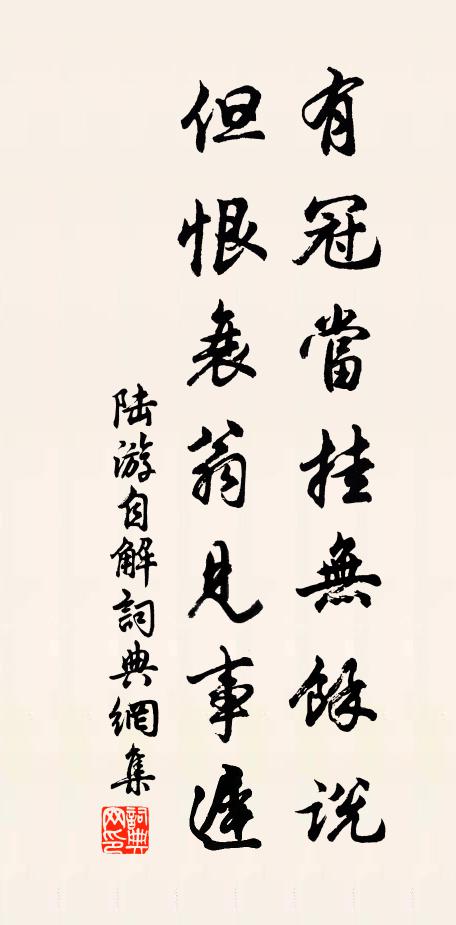 有冠當挂無餘説
但恨衰翁見事遲
陆游自解詞典網集
詞典網印